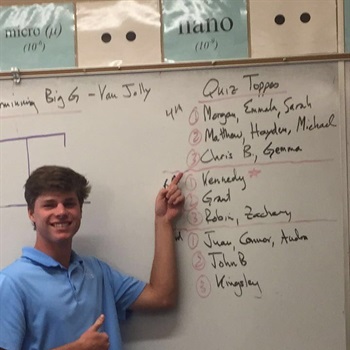 micro (μ)
(10⁻⁶)
nano
(10⁻⁹)
Big G - Von Jolly
Quiz Toppas
4th
① Morgan, Emmela, Sarah
② Matthew, Hayden, Michael
③ Chris B, Gemma
① Kennedy *
② Grant
③ Robin, Zachary
① Juan, Connor, Audra
② John B
③ Kingsley